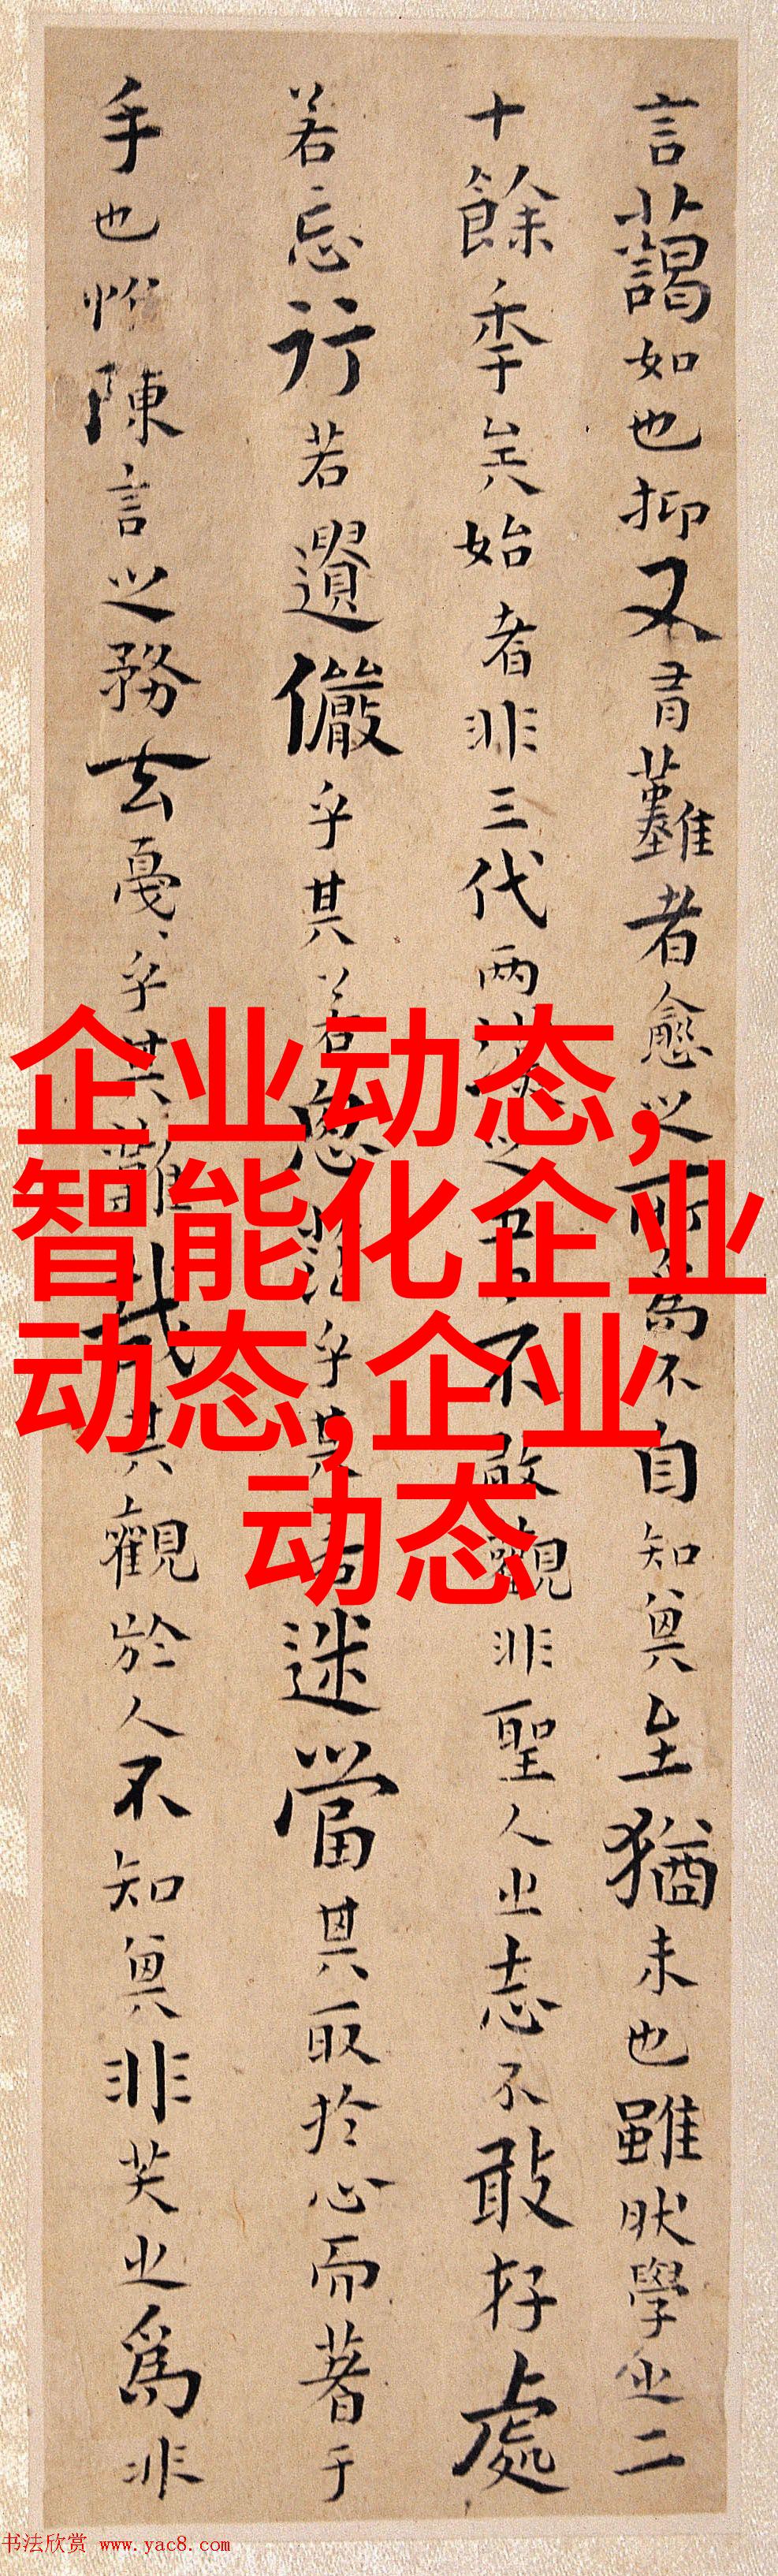 言藹如也抑又有難者愈之所為不自知其至猶未也雖然學之二
十餘年矣始者非三代兩漢之書不敢觀非聖人之志不敢存處
若忘行若遺儼乎其若思茫乎其若迷當其取於心而著于
手也惟陳言之務去戛戛乎其難哉其觀於人不知其非笑之為非
企业动态,
智能化企业
动态,企业
动态
书法欣赏 www.yac8.com